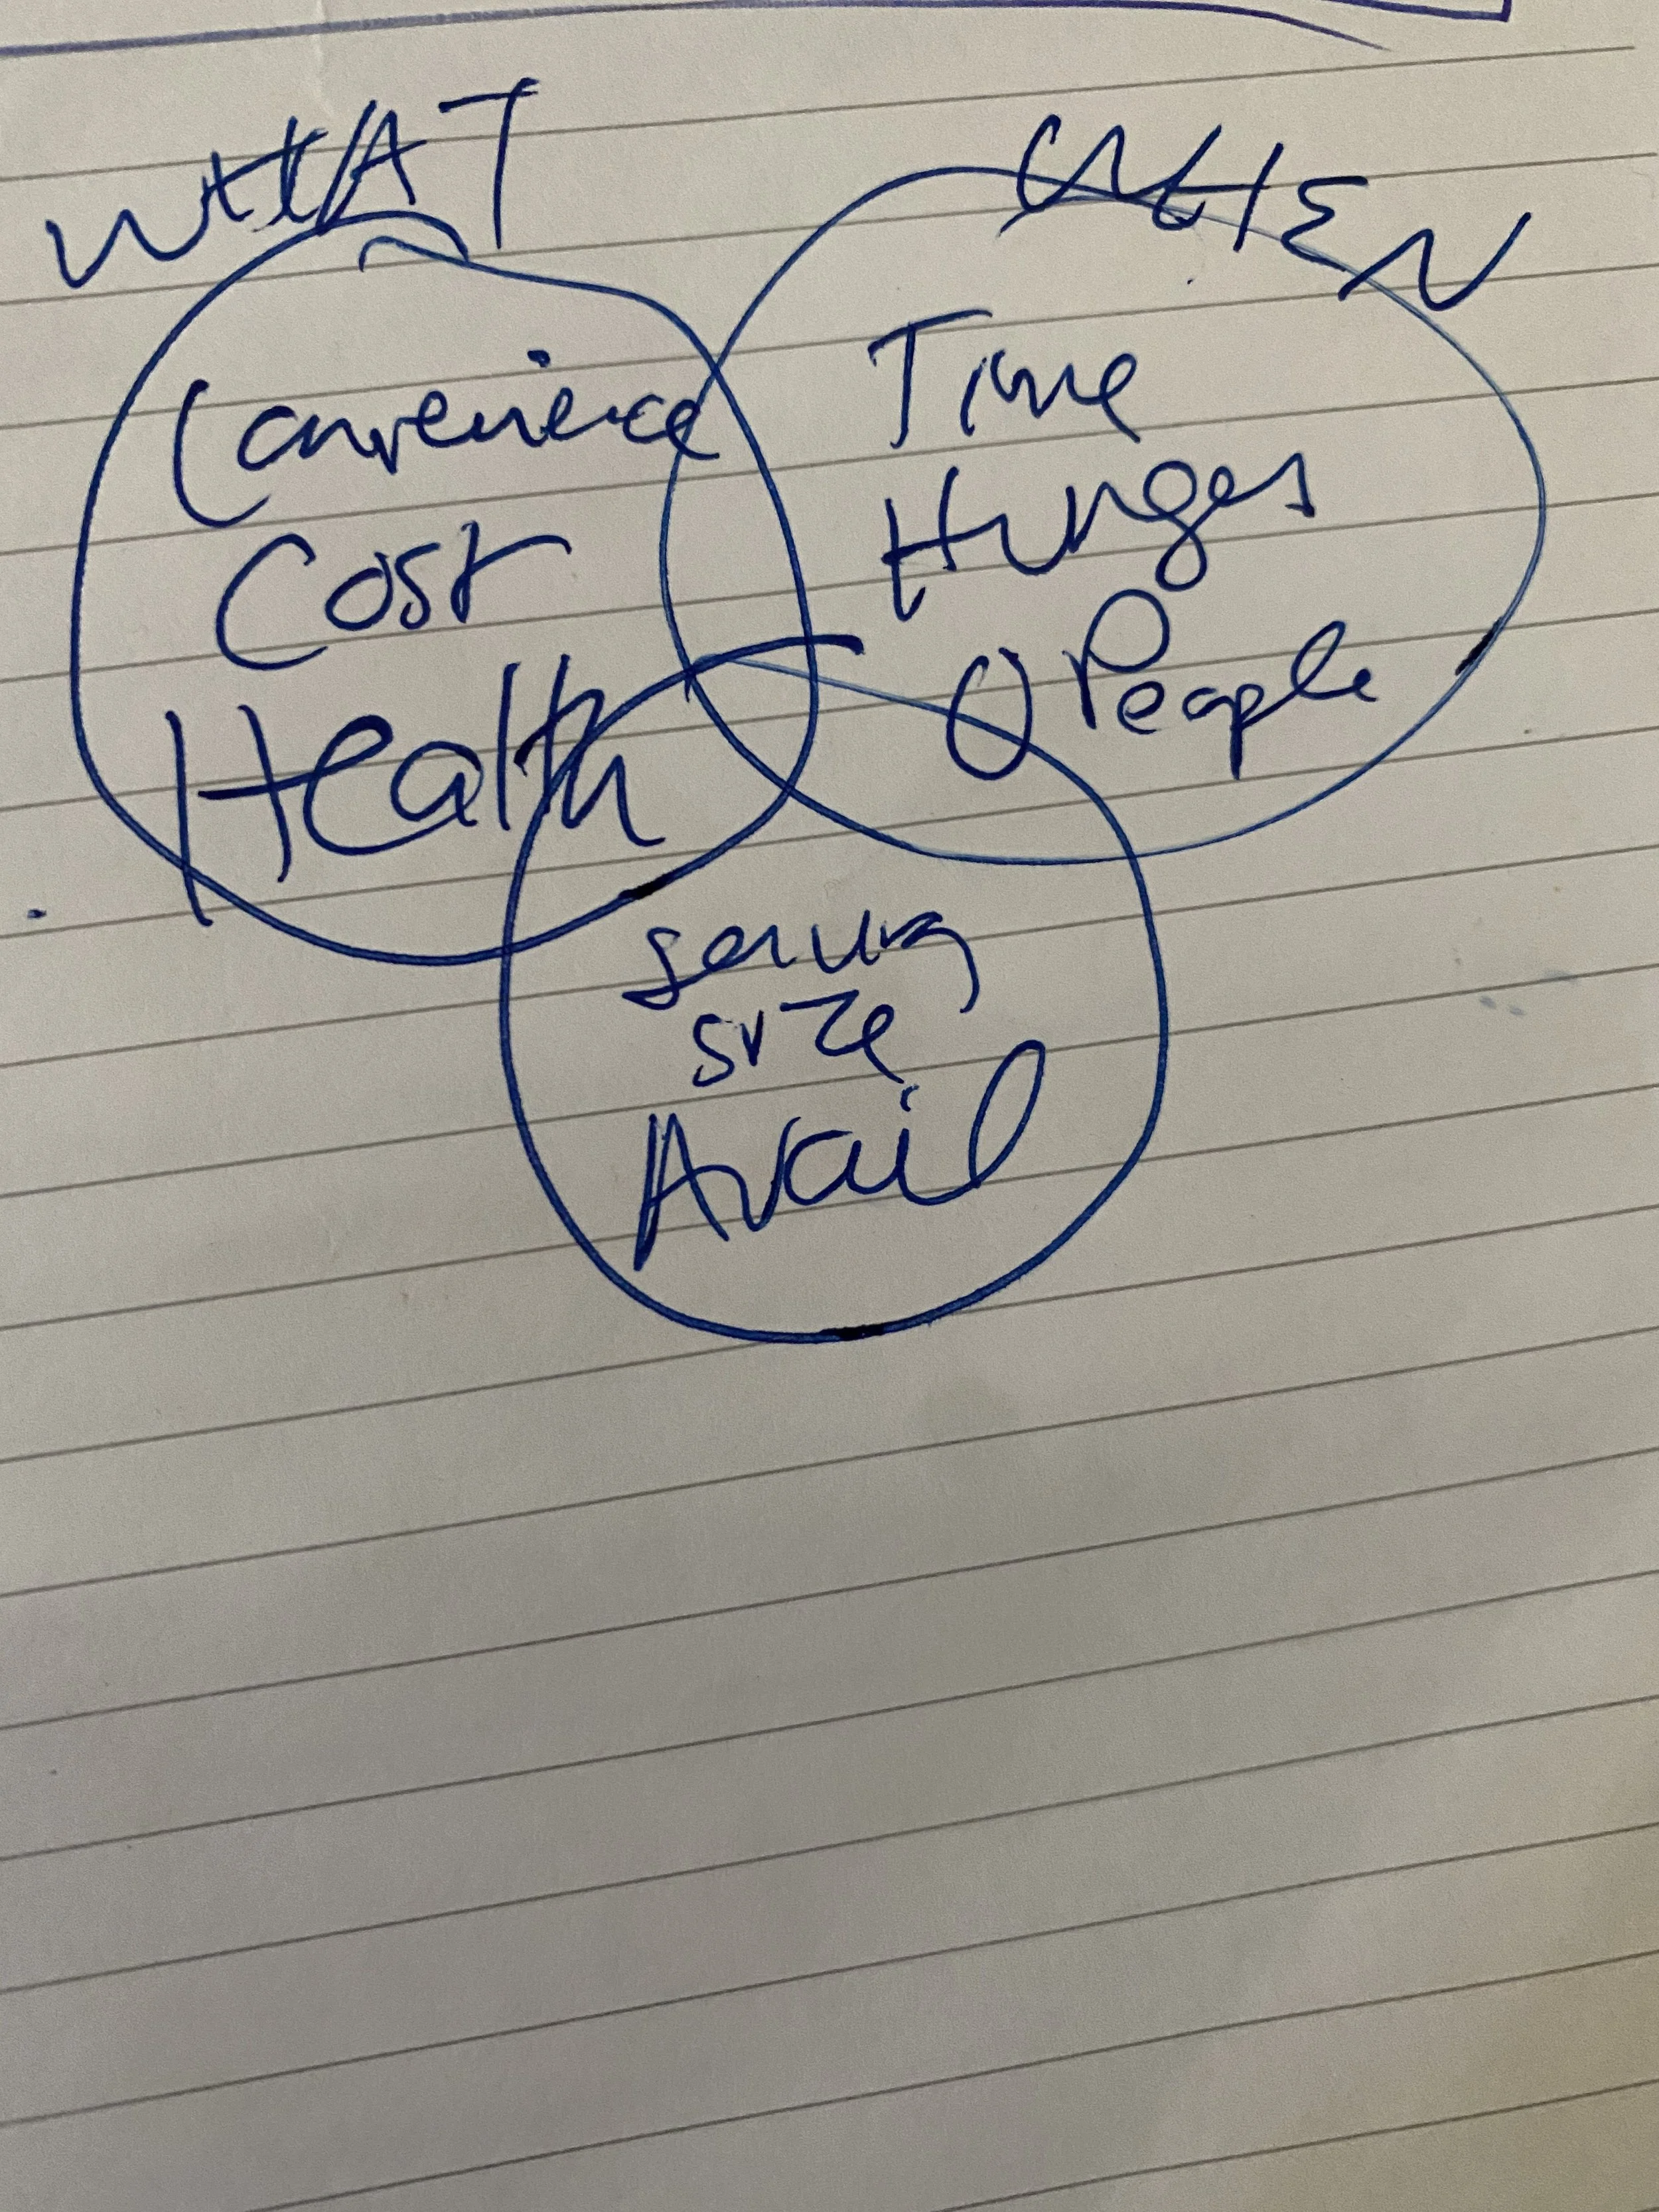 WHAT
WHEN
Convenience
Cost
Health
Time
Hunger
People
serving
size
Avail